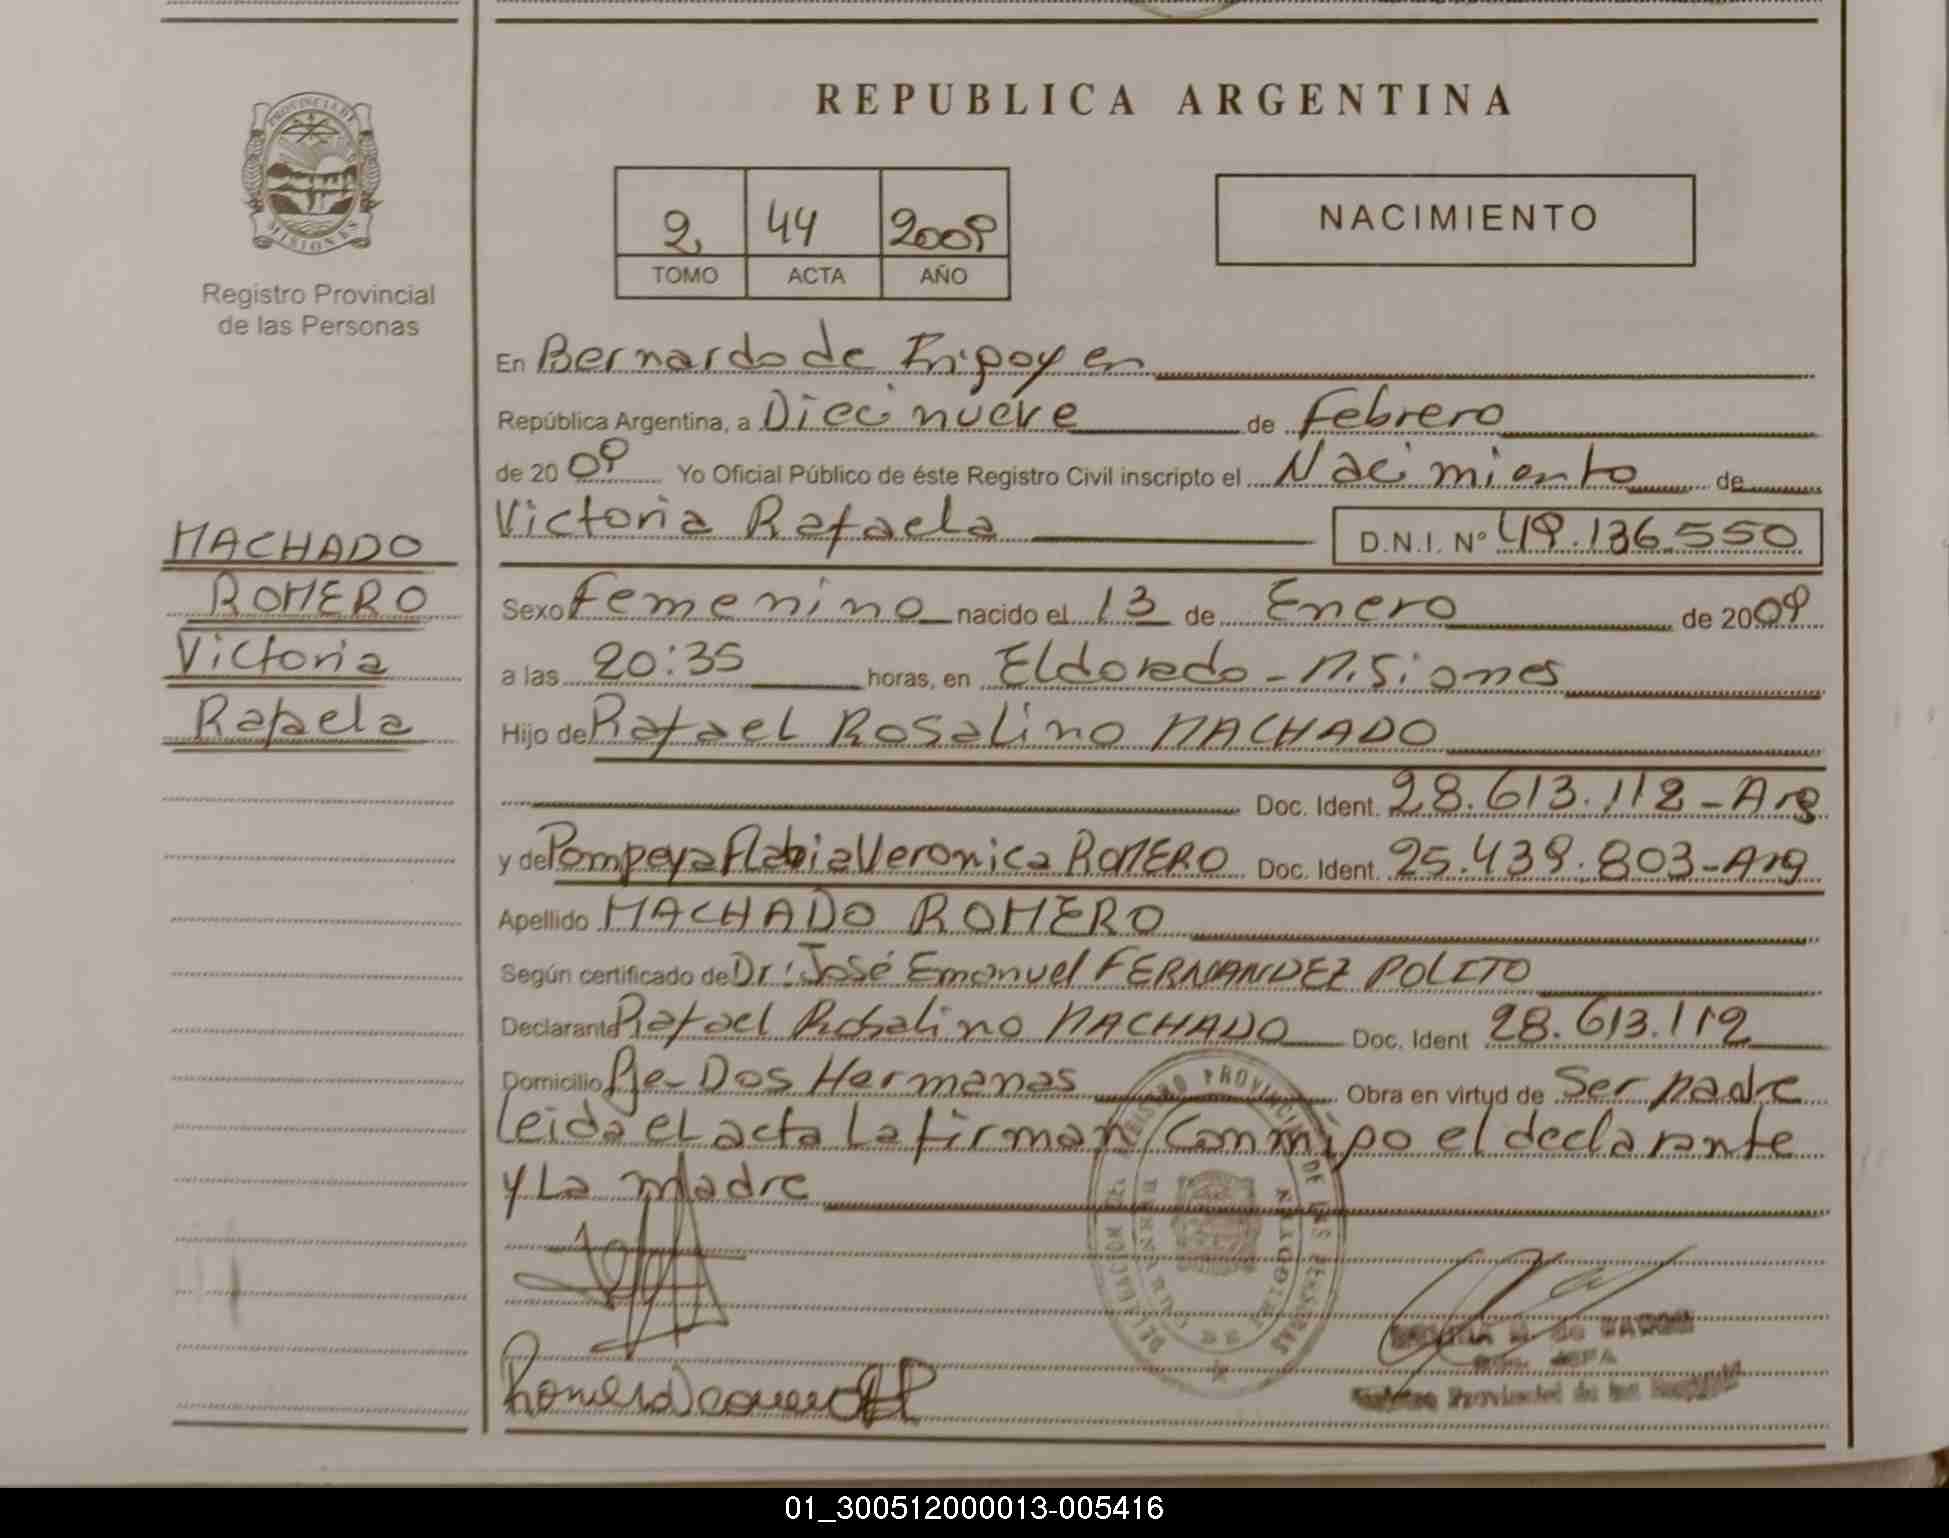 PROVINCIA DE
MISIONES
Registro Provincial
de las Personas
MACHADO
ROMERO
Victoria
Rafaela
REPUBLICA ARGENTINA
2 44 2009
TOMO ACTA AÑO
NACIMIENTO
En Bernardo de Irigoyen
República Argentina, a Dieci nueve de Febrero
de 2009 Yo Oficial Público de éste Registro Civil inscripto el Nacimiento de
Victoria Rafaela D.N.I. Nº 49.136.550
Sexo Femenino nacido el 13 de Enero de 2009
a las 20:35 horas, en Eldorado - Misiones
Hijo de Rafael Rosalino MACHADO
Doc. Ident. 28.613.112 - Arg
y de Pompeya Flabia Veronica ROMERO Doc. Ident. 25.439.803 - Arg
Apellido MACHADO ROMERO
Según certificado de Dr: José Emanuel FERNANDEZ POLITO
Declarante Rafael Rosalino MACHADO Doc. Ident 28.613.112
Domicilio Pje- Dos Hermanas Obra en virtud de Ser padre
Leida el acta La firman Conmigo el declarante
y La madre
REGISTRO PROVINCIAL DE LAS PERSONAS
01_300512000013-005416